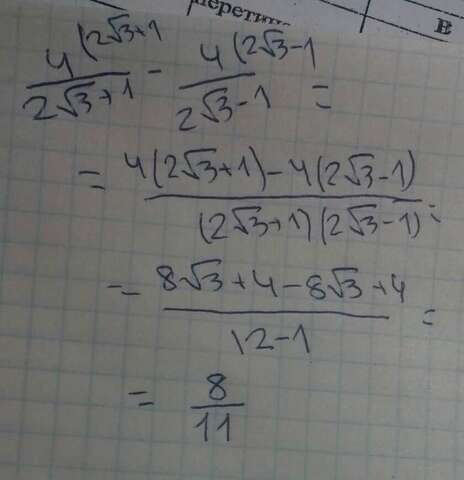 Е
4 (2√3+1 / 2√3+1 - 4 (2√3-1 / 2√3-1 =
= 4(2√3+1)-4(2√3-1) / (2√3+1)(2√3-1) =
= 8√3+4-8√3+4 / 12-1 =
= 8/11